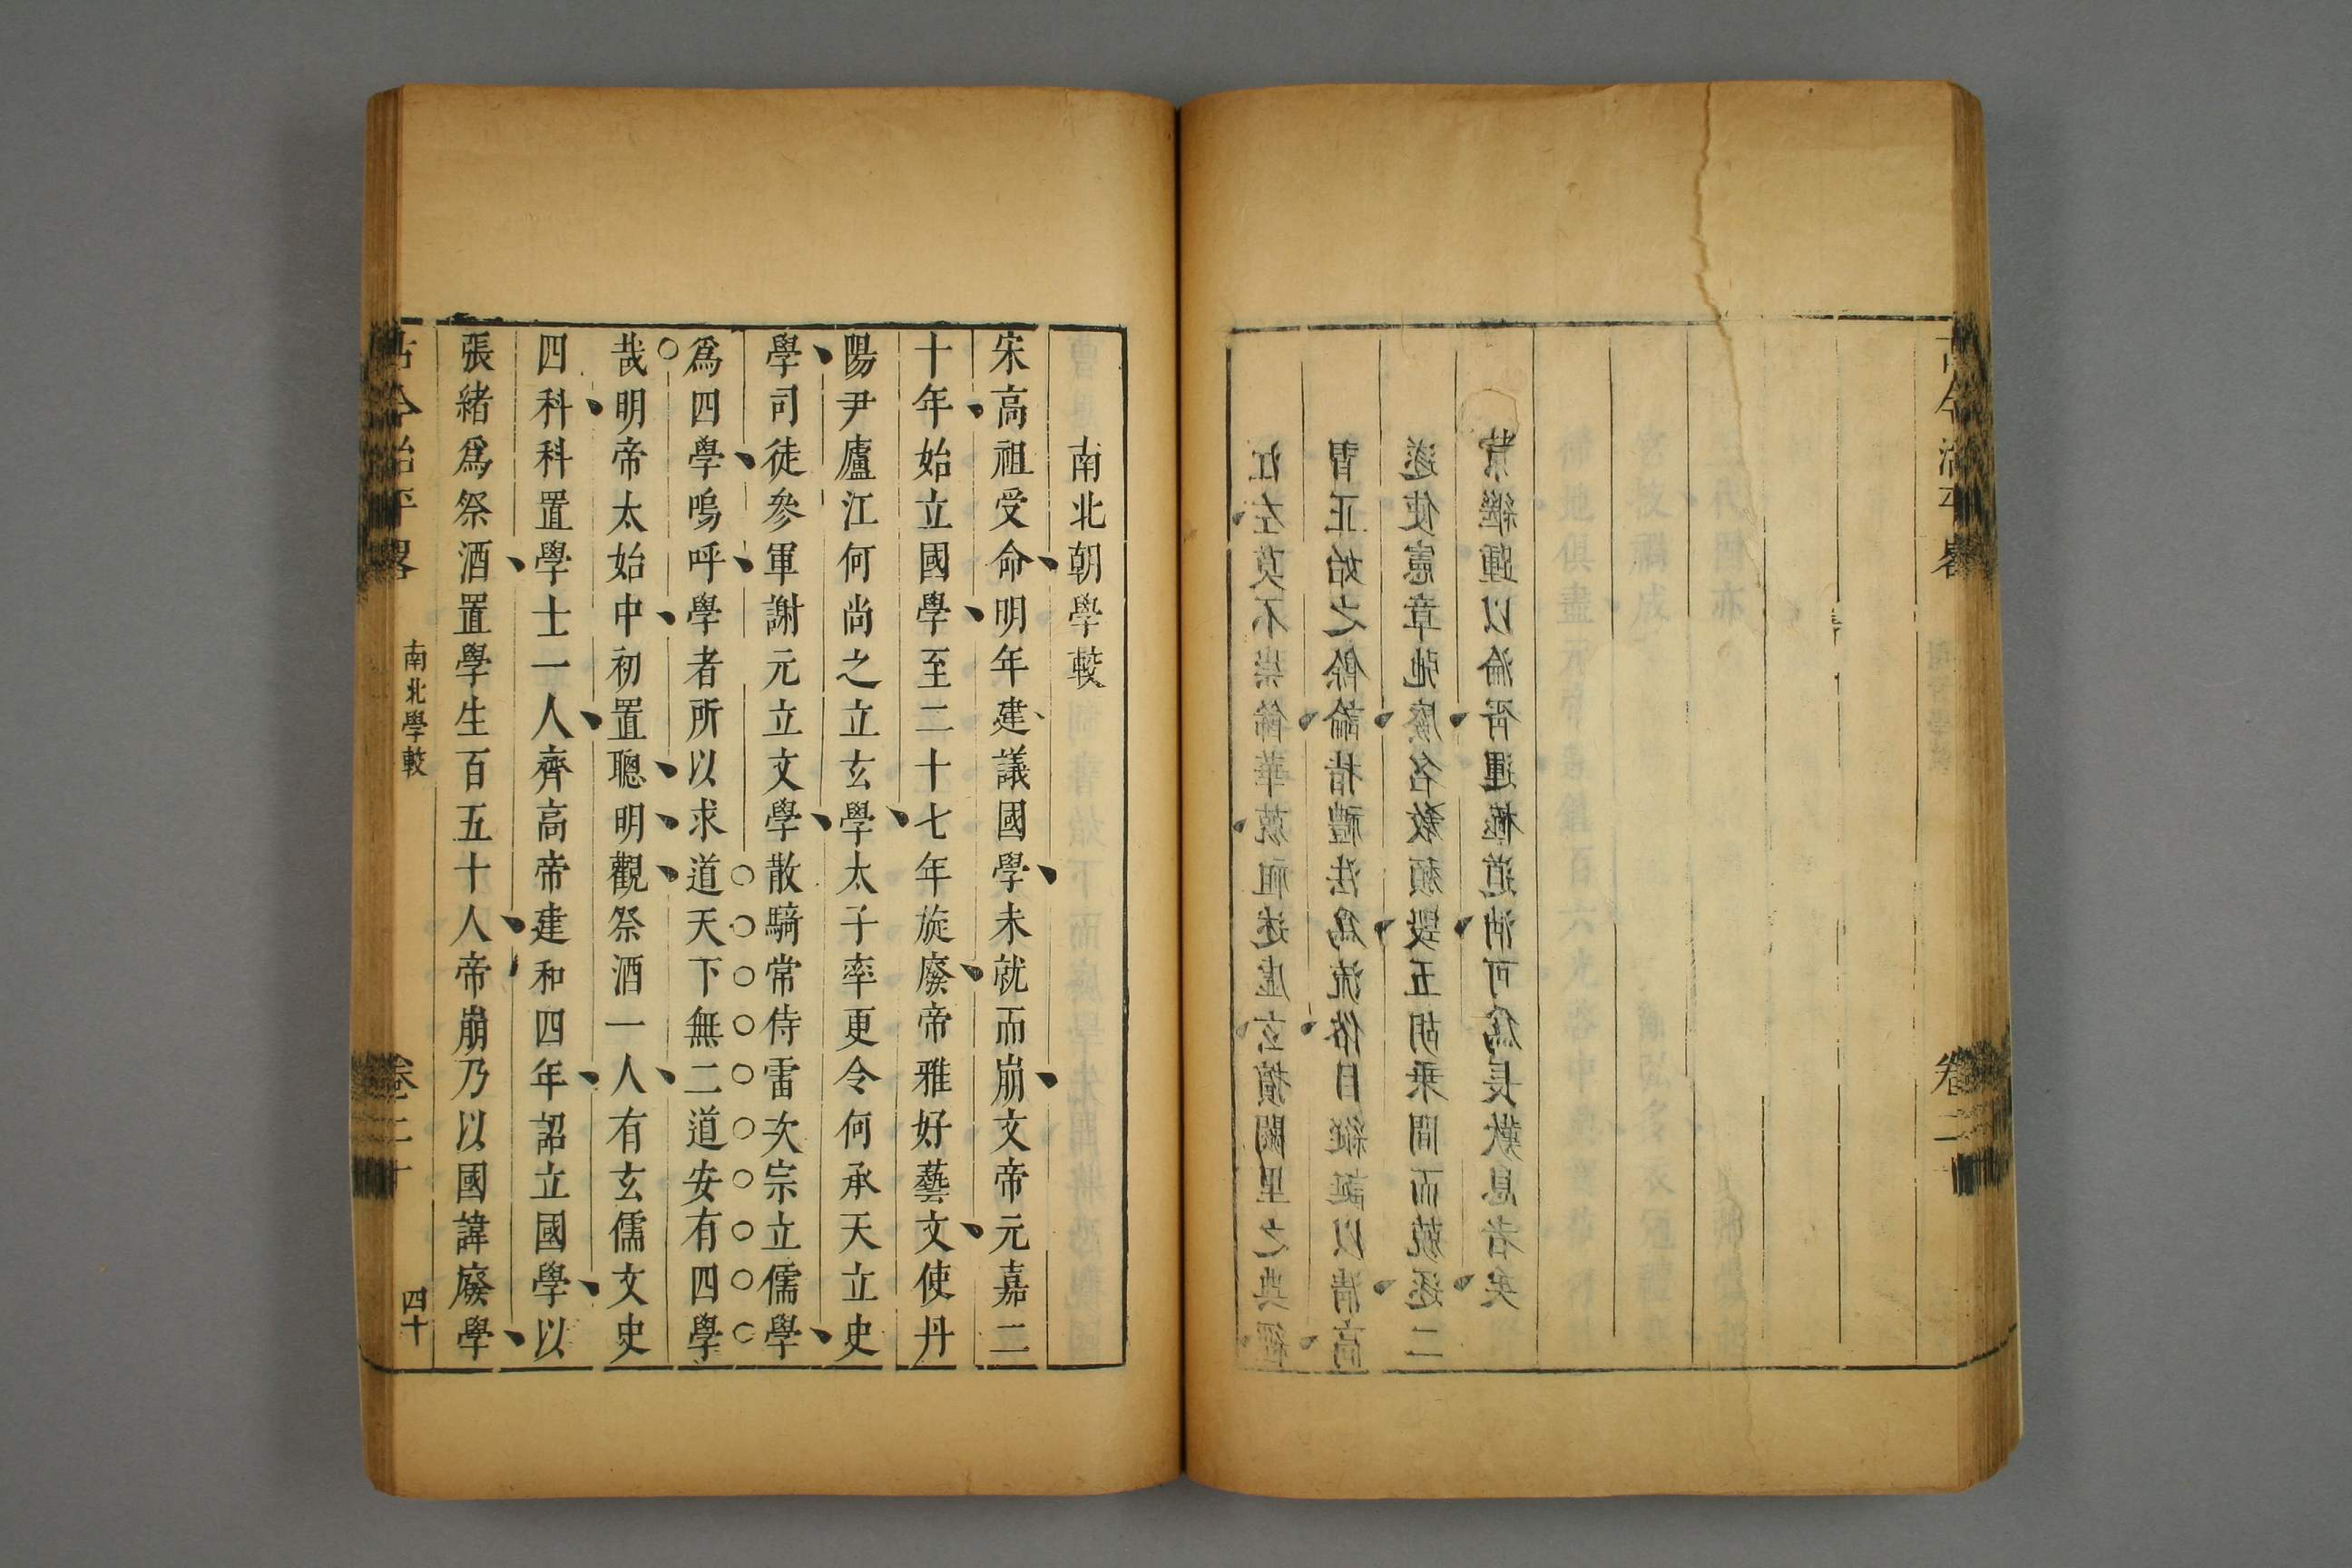 古今治平畧
江左莫不崇飾華競祖述虛玄擯闕里之典經
習正始之餘論指禮法爲流俗目縱誕以清高
遂使憲章弛廢名教頹毀五胡乘間而競逐二
京繼踵以淪胥運極道消可爲長歎息者矣
南北朝學較
宋高祖受命明年建議國學未就而崩文帝元嘉二
十年始立國學至二十七年旋廢帝雅好藝文使丹
陽尹廬江何尚之立玄學太子率更令何承天立史
學司徒參軍謝元立文學散騎常侍雷次宗立儒學
爲四學嗚呼學者所以求道天下無二道安有四學
哉明帝太始中初置聰明觀祭酒一人有玄儒文史
四科科置學士一人齊高帝建和四年詔立國學以
張緒爲祭酒置學生百五十人帝崩乃以國諱廢學
古今治平畧 南北學較 卷二十 四十